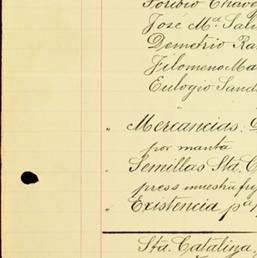 Toribio Chave
José Ma. Sal
Demetrio Ra
Filomeno Ma
Eulogio Sand
" Mercancias.
por manta
" Semillas Sta. C
press muestra
" Existencia pa
Sta. Catalina,